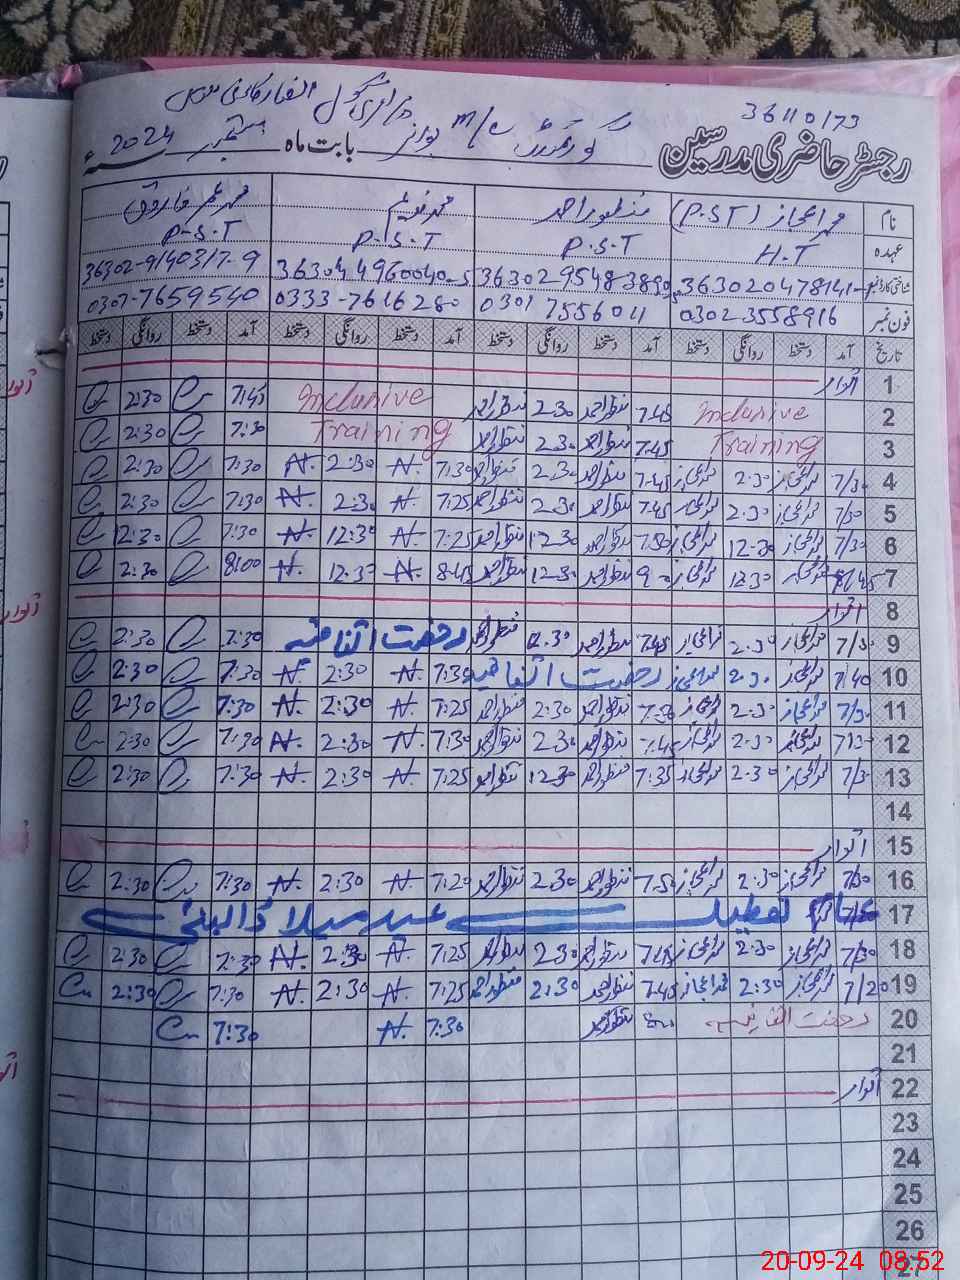 36110173
رجسٹر حاضری مدرسین گورنمنٹ m/c بوائز پرائمری سکول بابت ماہ ستمبر سنہ 2024ء
نام محمد اعجاز (P.S.T) منظور احمد محمد ندیم محمد عمر فاروق
عہدہ H.T P.S.T P.S.T P.S.T
شناختی کارڈ نمبر
فون نمبر 03023558916 0301 7556011 0333-7616280 0307-7659540
تاریخ آمد دستخط روانگی دستخط آمد دستخط روانگی دستخط آمد دستخط روانگی دستخط آمد دستخط روانگی دستخط
1 اتوار
2 Inclusive 7.45 منظور احمد 2.30 منظور احمد Inclusive 7:45 2:30
3 Training 7.45 منظور احمد 2.30 منظور احمد Training 7:30 2:30
4 7/30 محمد اعجاز 2.30 محمد اعجاز 7.45 منظور احمد 2.30 منظور احمد 7:30 N. 2:30 N. 7:30 2:30
5 7/30 محمد اعجاز 2.30 محمد اعجاز 7.45 منظور احمد 2.30 منظور احمد 7:25 N. 2:30 N. 7:30 2:30
6 7/30 محمد اعجاز 12.30 محمد اعجاز 7.50 منظور احمد 12.30 منظور احمد 7:25 N. 12:30 N. 7:30 12:30
7 8/45 محمد اعجاز 12.30 محمد اعجاز منظور احمد 12.30 منظور احمد 8:45 N. 12:30 N. 8:00 2:30
8 اتوار
9 7/30 محمد اعجاز 2.30 محمد اعجاز 7.45 منظور احمد 2.30 منظور احمد رخصت اتفاقیہ 7:30 2:30
10 7/40 محمد اعجاز 2.30 محمد اعجاز رخصت اتفاقیہ 7:30 N. 2:30 N. 7:30 2:30
11 7/30 محمد اعجاز 2.30 محمد اعجاز 7.50 منظور احمد 2.30 منظور احمد 7:25 N. 2:30 N. 7:30 2:30
12 7/30 محمد اعجاز 2.30 محمد اعجاز 7.45 منظور احمد 2.30 منظور احمد 7:30 N. 2:30 N. 7:30 2:30
13 7/30 محمد اعجاز 2.30 محمد اعجاز 7:35 منظور احمد 12.30 منظور احمد 7:25 N. 2:30 N. 7:30 2:30
14
15 اتوار
16 7/30 محمد اعجاز 2:30 محمد اعجاز 7.50 منظور احمد 2.30 منظور احمد 7:20 N. 2:30 N. 7:30 2:30
17 تعطیل عید میلاد النبی
18 7/30 محمد اعجاز 2:30 محمد اعجاز 7.45 منظور احمد 2.30 منظور احمد 7:25 N. 2:30 N. 7:30 2:30
19 7/20 محمد اعجاز 2:30 محمد اعجاز 7.45 منظور احمد 2:30 منظور احمد 7:25 N. 2:30 N. 7:30 2:30
20 رخصت اتفاقیہ منظور احمد 7:30 N. 7:30
21
22 اتوار
23
24
25
26
27
20-09-24 08:52